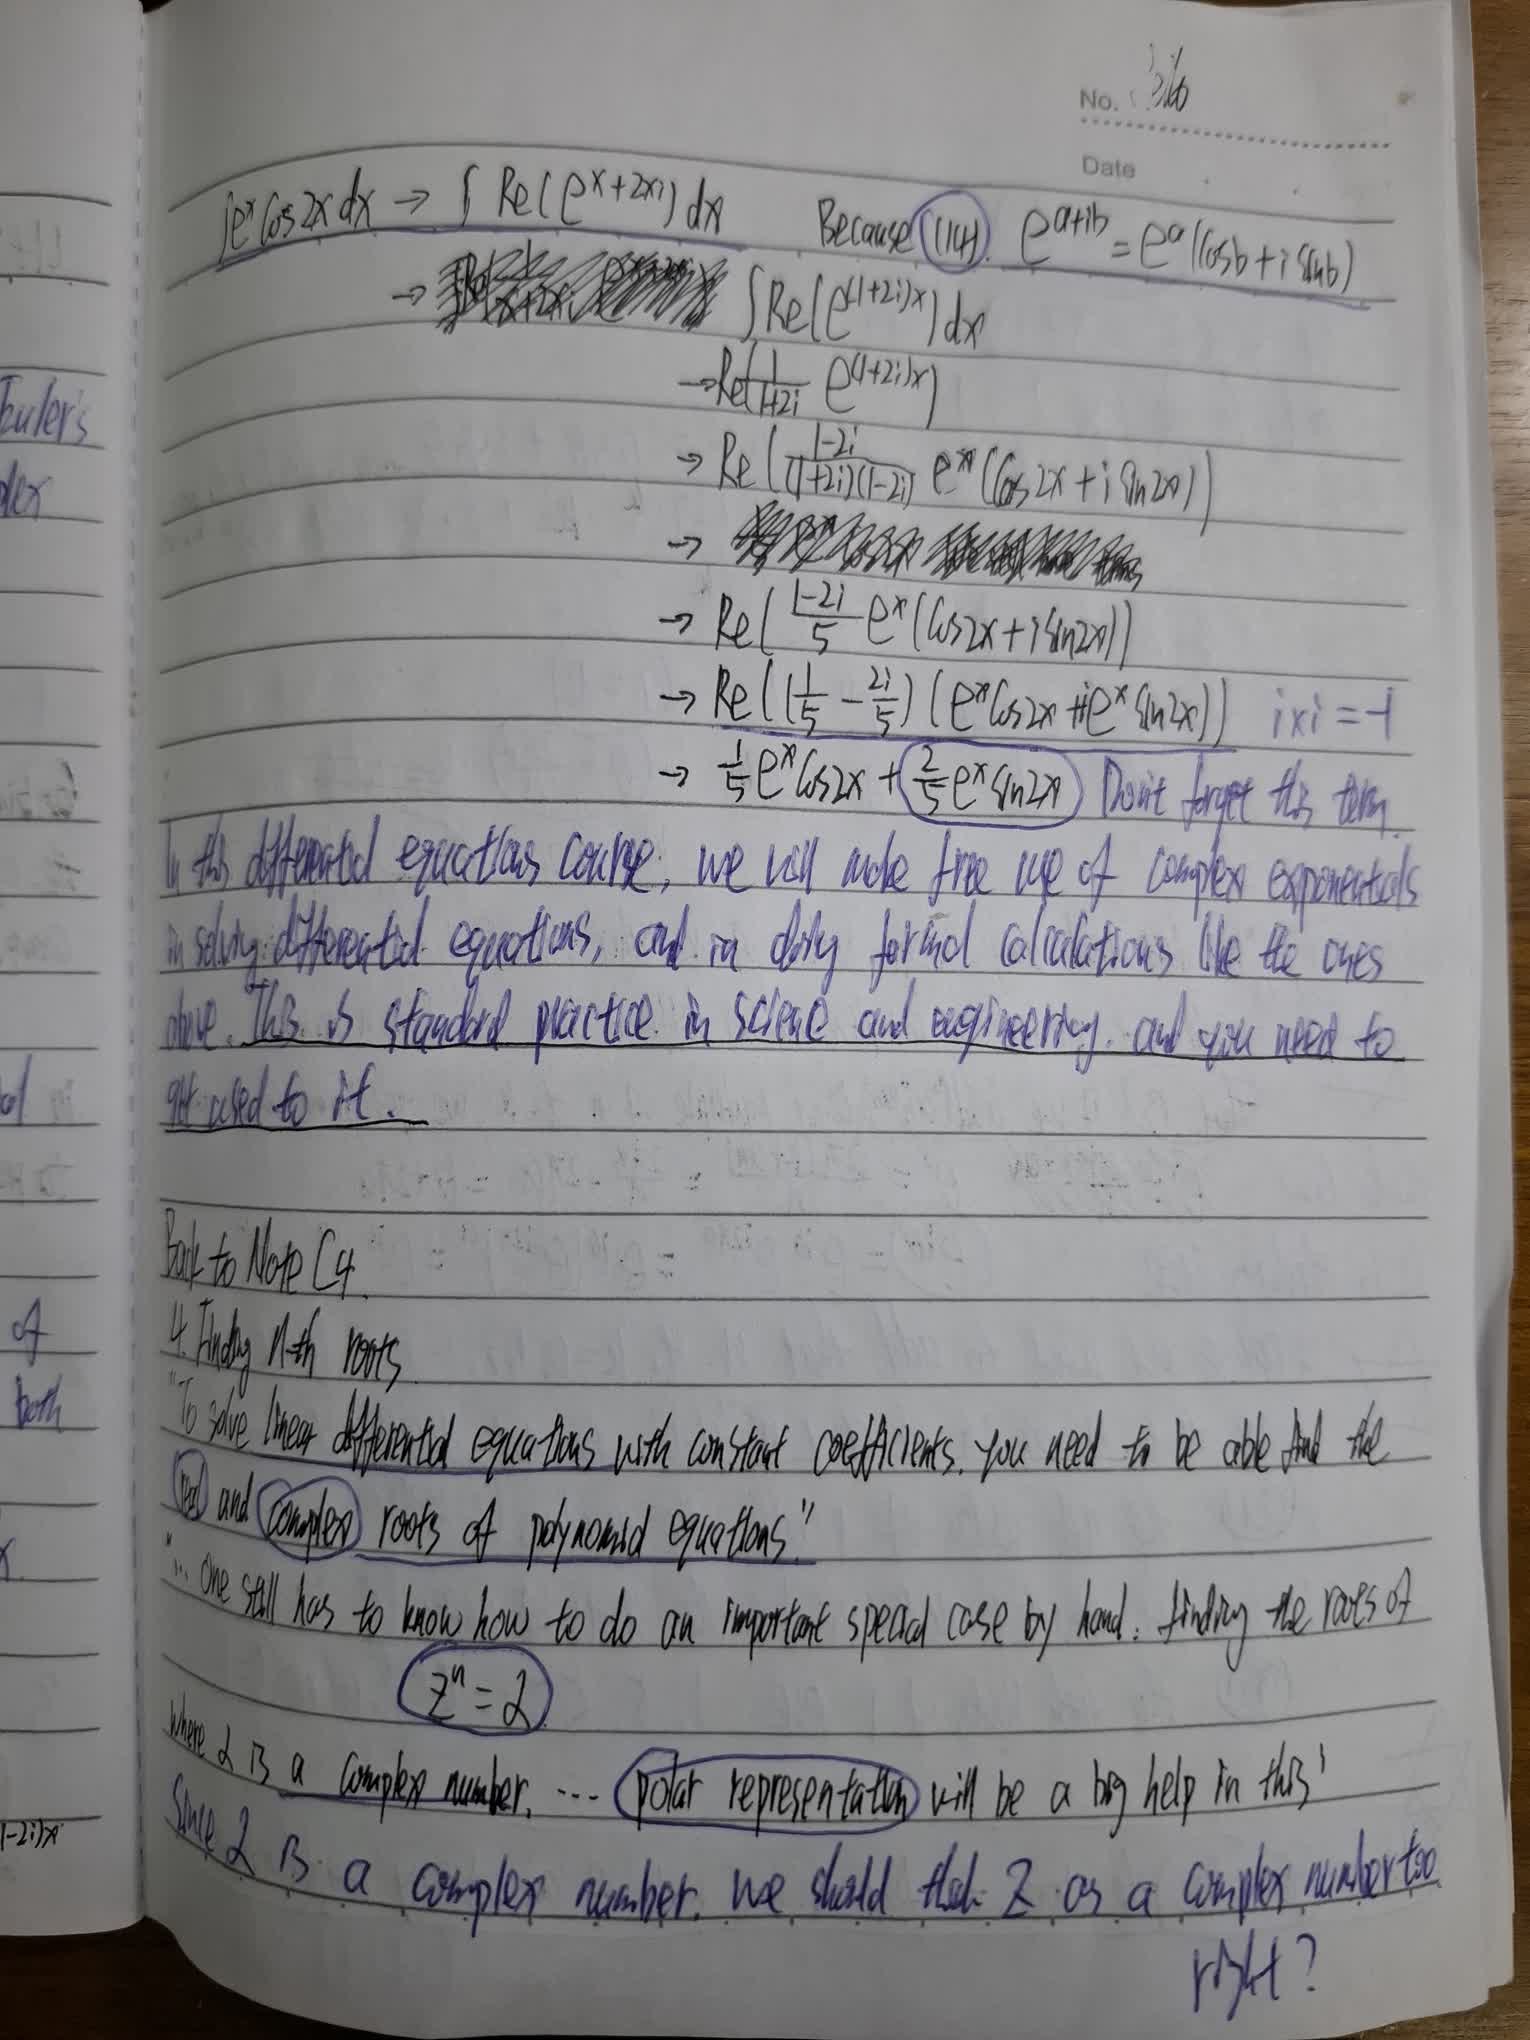 No. 36
Date
∫e^x Cos2x dx → ∫ Re(e^{x+2xi}) dx Because (14). e^{a+ib} = e^a (Cosb + i Sinb)
→ ∫Re(e^{(1+2i)x}) dx
→ Re(1/(1+2i) e^{(1+2i)x})
→ Re((1-2i)/((1+2i)(1-2i)) e^x (Cos2x + i Sin2x))
→
→ Re((1-2i)/5 e^x (Cos2x + i Sin2x))
→ Re((1/5 - 2i/5) (e^x Cos2x + ie^x Sin2x)) i×i = -1
→ 1/5 e^x Cos2x + 2/5 e^x Sin2x Don't forget this term.
In this differential equations course, we will make free use of complex exponentials
in solving differential equations, and in doing formal calculations like the ones
above. This is standard practice in science and engineering, and you need to
get used to it.
Back to Note C4.
4. Finding n-th roots
"To solve linear differential equations with constant coefficients, you need to be able find the
real and complex roots of polynomial equations."
"... one still has to know how to do an important special case by hand: finding the roots of
z^n = α
where α is a complex number. ... polar representation will be a big help in this"
Since α is a complex number, we should think z as a complex number too
right?
Euler's
of
both
1-2i)x